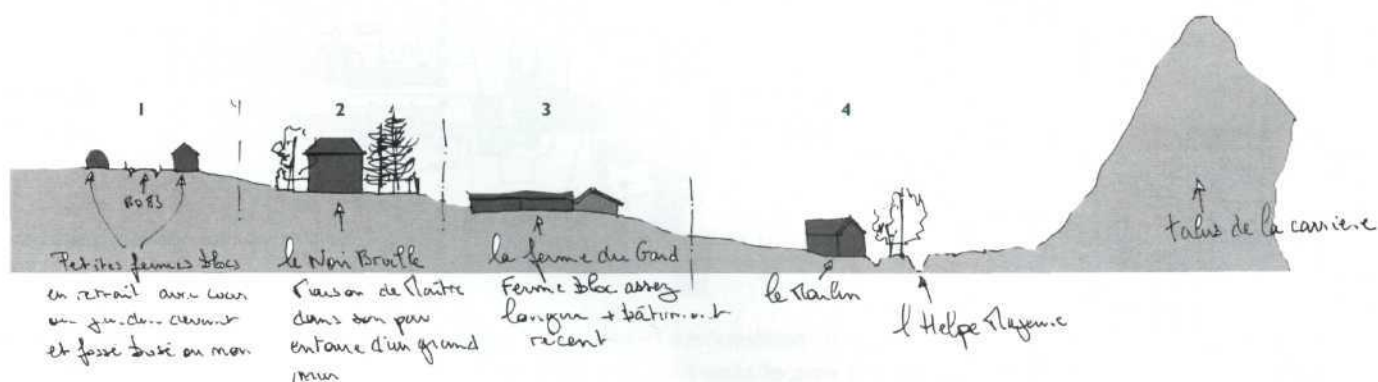 1
4
2
3
4
RD 83
Petites fermes blocs
en retrait avec cour
ou jardin devant
et fossé busé ou non
le Noir Bruille
Maison de Maître
dans son parc
entouré d'un grand
mur
la ferme du Gard
Ferme bloc assez
longue + bâtiment
récent
le Moulin
l'Helpe Majeure
talus de la carrière